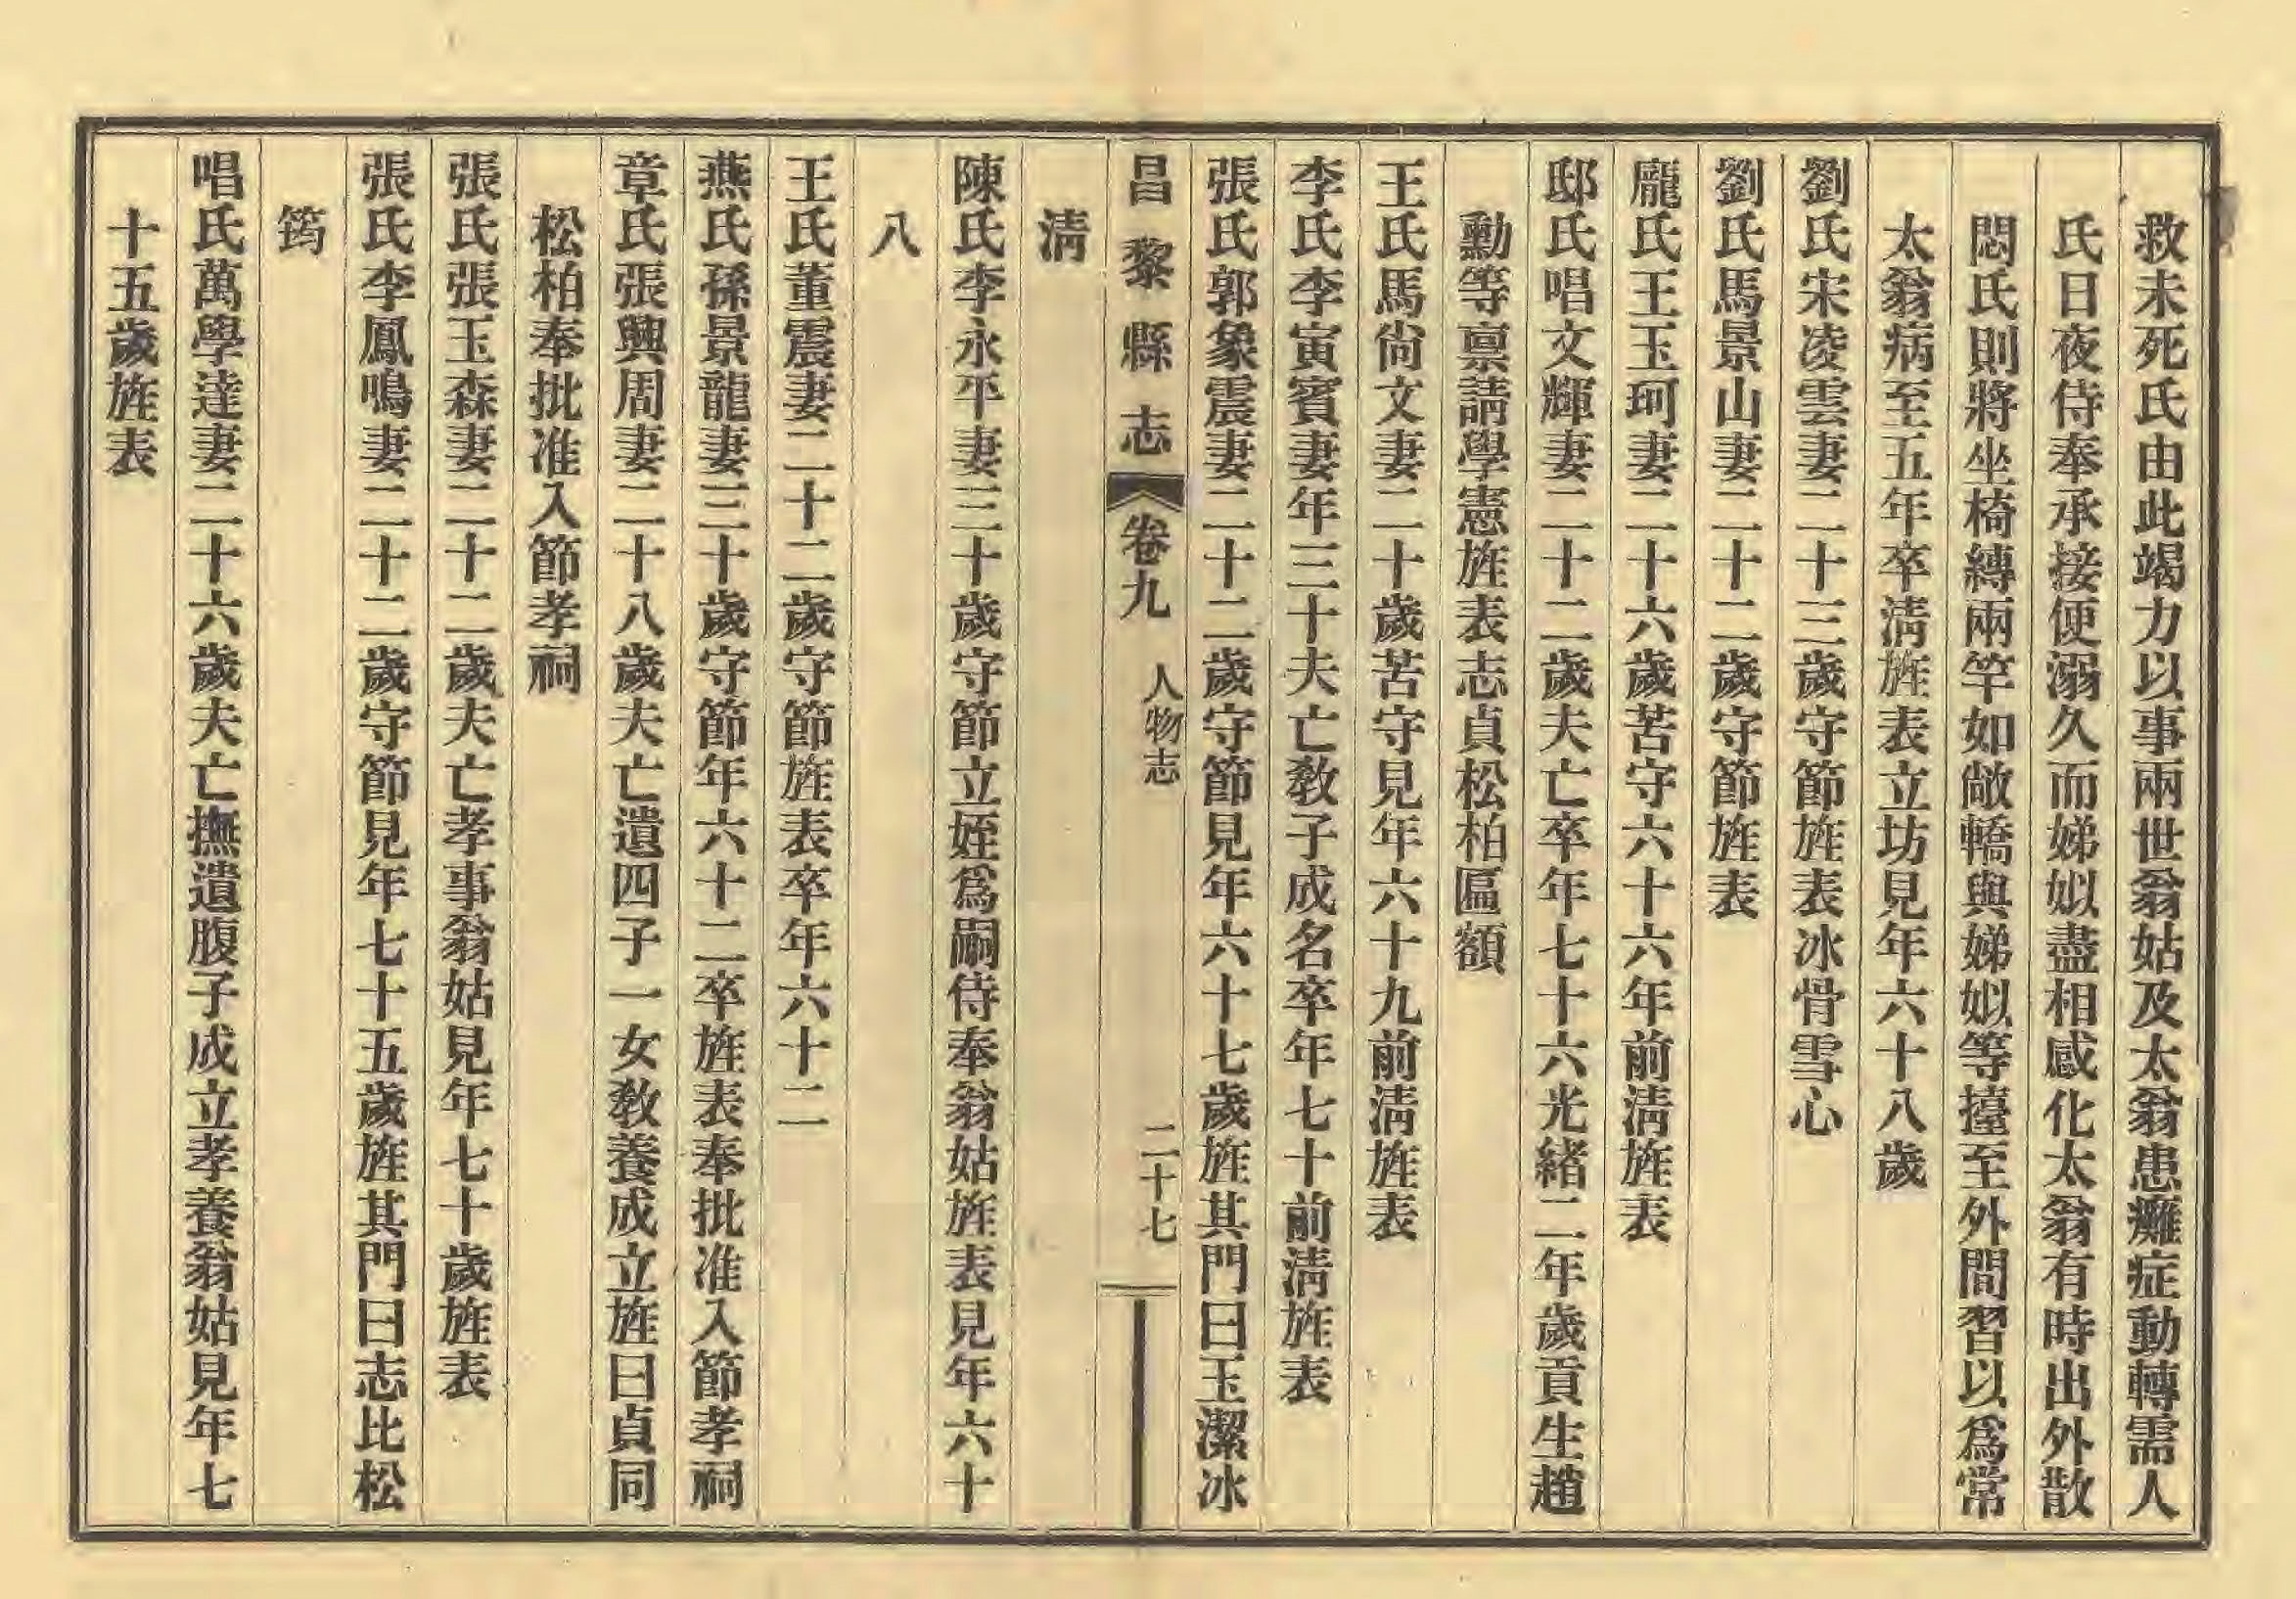 救未死氏由此竭力以事兩世翁姑及太翁患癱症動轉需人
氏日夜侍奉承接便溺久而娣姒盡相感化太翁有時出外散
悶氏則將坐椅縛兩竿如敞轎與娣姒等擡至外間習以爲常
太翁病至五年卒淸旌表立坊見年六十八歲
劉氏宋凌雲妻二十三歲守節旌表冰骨雪心
劉氏馬景山妻二十二歲守節旌表
龐氏王玉珂妻二十六歲苦守六十六年前淸旌表
邸氏唱文輝妻二十二歲夫亡卒年七十六光緒二年歲貢生趙
勳等禀請學憲旌表志貞松柏匾額
王氏馬尙文妻二十歲苦守見年六十九前淸旌表
李氏李寅賓妻年三十夫亡敎子成名卒年七十前淸旌表
張氏郭象震妻二十二歲守節見年六十七歲旌其門曰玉潔冰
昌黎縣志 卷九 人物志 二十七
淸
陳氏李永平妻三十歲守節立姪爲嗣侍奉翁姑旌表見年六十
八
王氏董震妻二十二歲守節旌表卒年六十二
燕氏孫景龍妻三十歲守節年六十二卒旌表奉批准入節孝祠
章氏張興周妻二十八歲夫亡遺四子一女敎養成立旌曰貞同
松柏奉批准入節孝祠
張氏張玉森妻二十二歲夫亡孝事翁姑見年七十歲旌表
張氏李鳳鳴妻二十二歲守節見年七十五歲旌其門曰志比松
筠
唱氏萬學逹妻二十六歲夫亡撫遺腹子成立孝養翁姑見年七
十五歲旌表